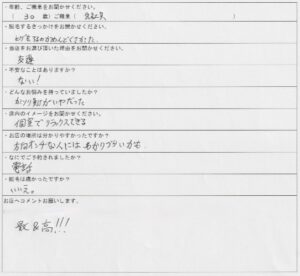 ・年齢、ご職業をお聞かせください。
（ 30 歳）ご職業（ 自営業 ）
・脱毛するきっかけをお聞かせください。
・当店をお選び頂いた理由をお聞かせください。
友達
・不安なことはありますか？
ない！
・どんなお悩みを持っていましたか？
かみそり剃がいやだった
・店内のイメージをお聞かせください。
個室でリラックスできる
・お店の場所は分かりやすかったですか？
方向オンチな人にはわかりづらいかも
・なにでご予約されましたか？
電話
・脱毛は痛かったですか？
いいえ。
お店へコメントお願いします。
最&高!!!